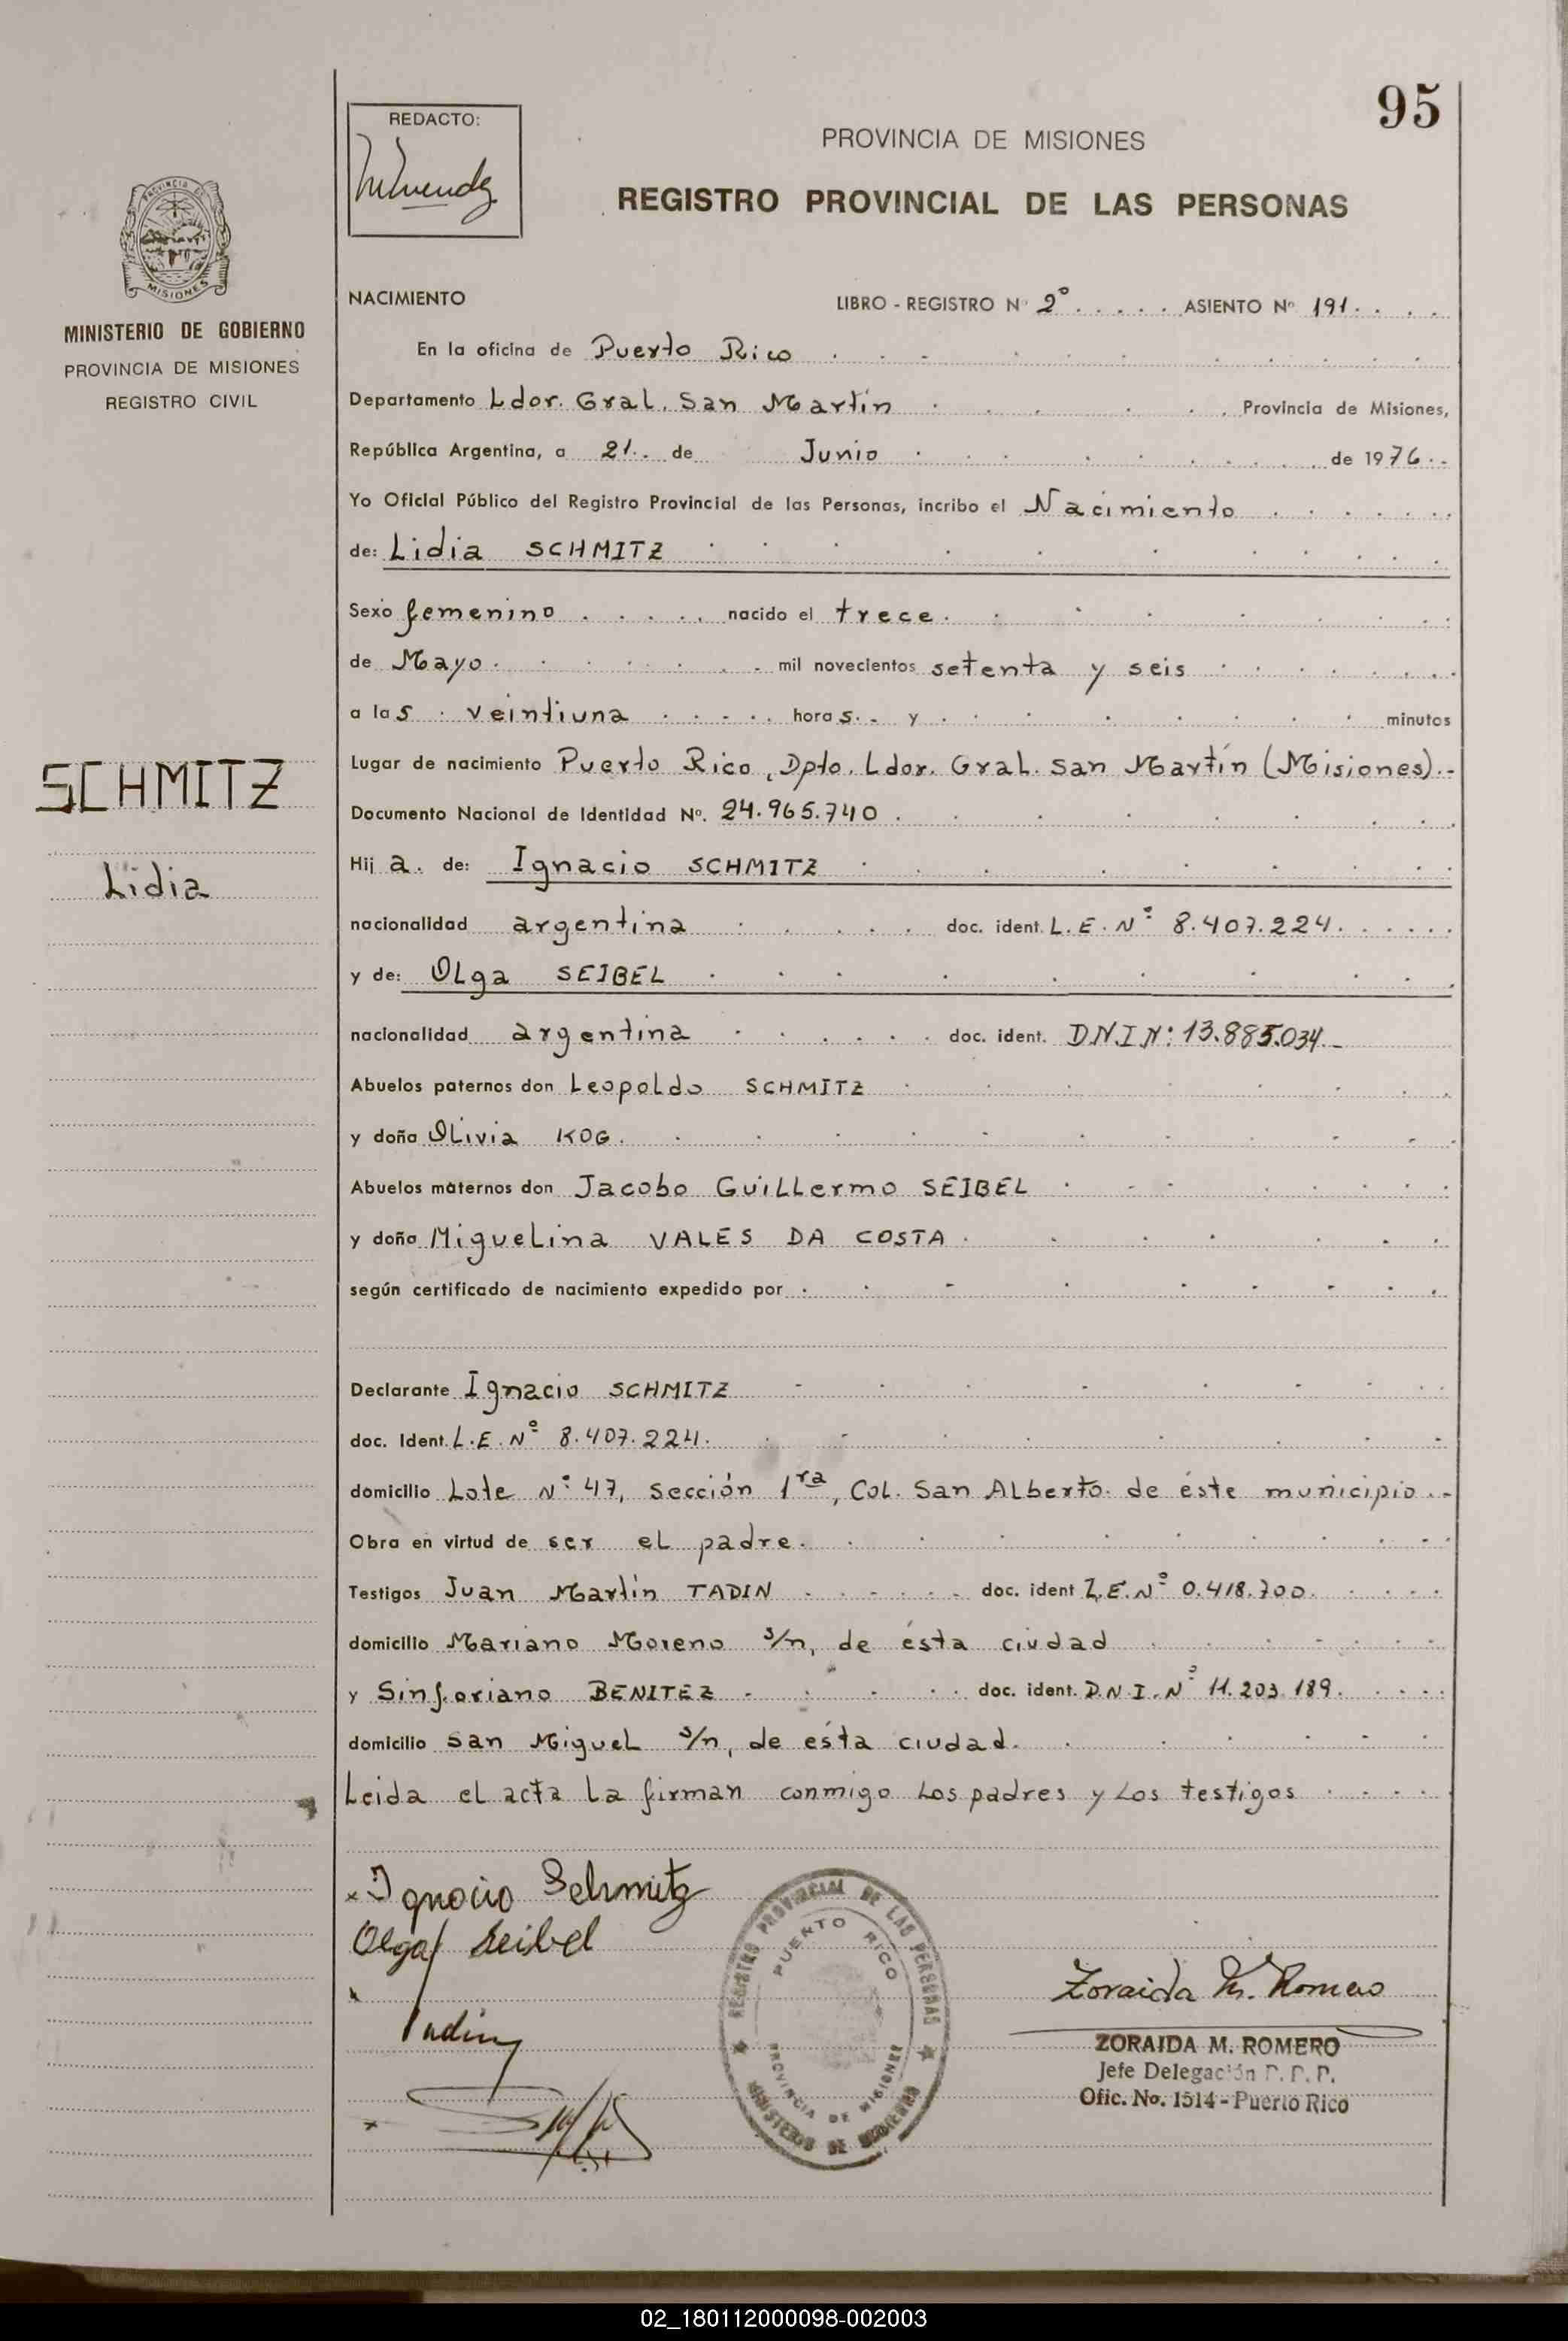 95
REDACTO:
PROVINCIA DE MISIONES
REGISTRO PROVINCIAL DE LAS PERSONAS
MISIONES
MINISTERIO DE GOBIERNO
PROVINCIA DE MISIONES
REGISTRO CIVIL
SCHMITZ
Lidia
NACIMIENTO LIBRO - REGISTRO Nº 2º ASIENTO Nº 191.
En la oficina de Puerto Rico
Departamento Ldor. Gral. San Martín Provincia de Misiones,
República Argentina, a 21 de Junio de 1976
Yo Oficial Público del Registro Provincial de las Personas, incribo el Nacimiento
de: Lidia SCHMITZ
Sexo femenino nacido el trece
de Mayo mil novecientos setenta y seis
a las veintiuna horas. y minutos
Lugar de nacimiento Puerto Rico, Dpto. Ldor. Gral. San Martín (Misiones).-
Documento Nacional de Identidad Nº. 24.965.740
Hija. de: Ignacio SCHMITZ
nacionalidad argentina doc. ident. L.E. Nº 8.407.224.
y de: Olga SEIBEL
nacionalidad argentina doc. ident. D.N.I Nº: 13.885.034.-
Abuelos paternos don Leopoldo SCHMITZ
y doña Olivia KOG.
Abuelos maternos don Jacobo Guillermo SEIBEL
y doña Miguelina VALES DA COSTA
según certificado de nacimiento expedido por
Declarante Ignacio SCHMITZ
doc. Ident. L.E. Nº 8.407.224.
domicilio Lote Nº 47, Sección 1ra, Col. San Alberto de éste municipio.-
Obra en virtud de ser el padre.
Testigos Juan Martín TADIN doc. ident L.E. Nº 0.418.700.
domicilio Mariano Moreno s/n, de ésta ciudad
y Sinforiano BENITEZ doc. ident. D.N.I. Nº 11.203.189.
domicilio San Miguel s/n, de ésta ciudad.
Leida el acta la firman conmigo los padres y los testigos
Ignacio Schmitz
Olga Seibel
Tadin
REGISTRO PROVINCIAL DE LAS PERSONAS
PUERTO RICO
PROVINCIA DE MISIONES
MINISTERIO DE GOBIERNO
Zoraida M. Romero
ZORAIDA M. ROMERO
Jefe Delegación R. P. P.
Ofic. No. 1514 - Puerto Rico
02_180112000098-002003